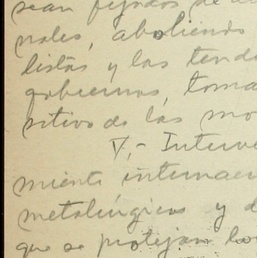 sean fijados de
nales, aboliendo
listas y las tende
gobiernos, toma
sitivos de las mo
V,- Interve
miento internac
metalúrgicos y d
que se protejan lo